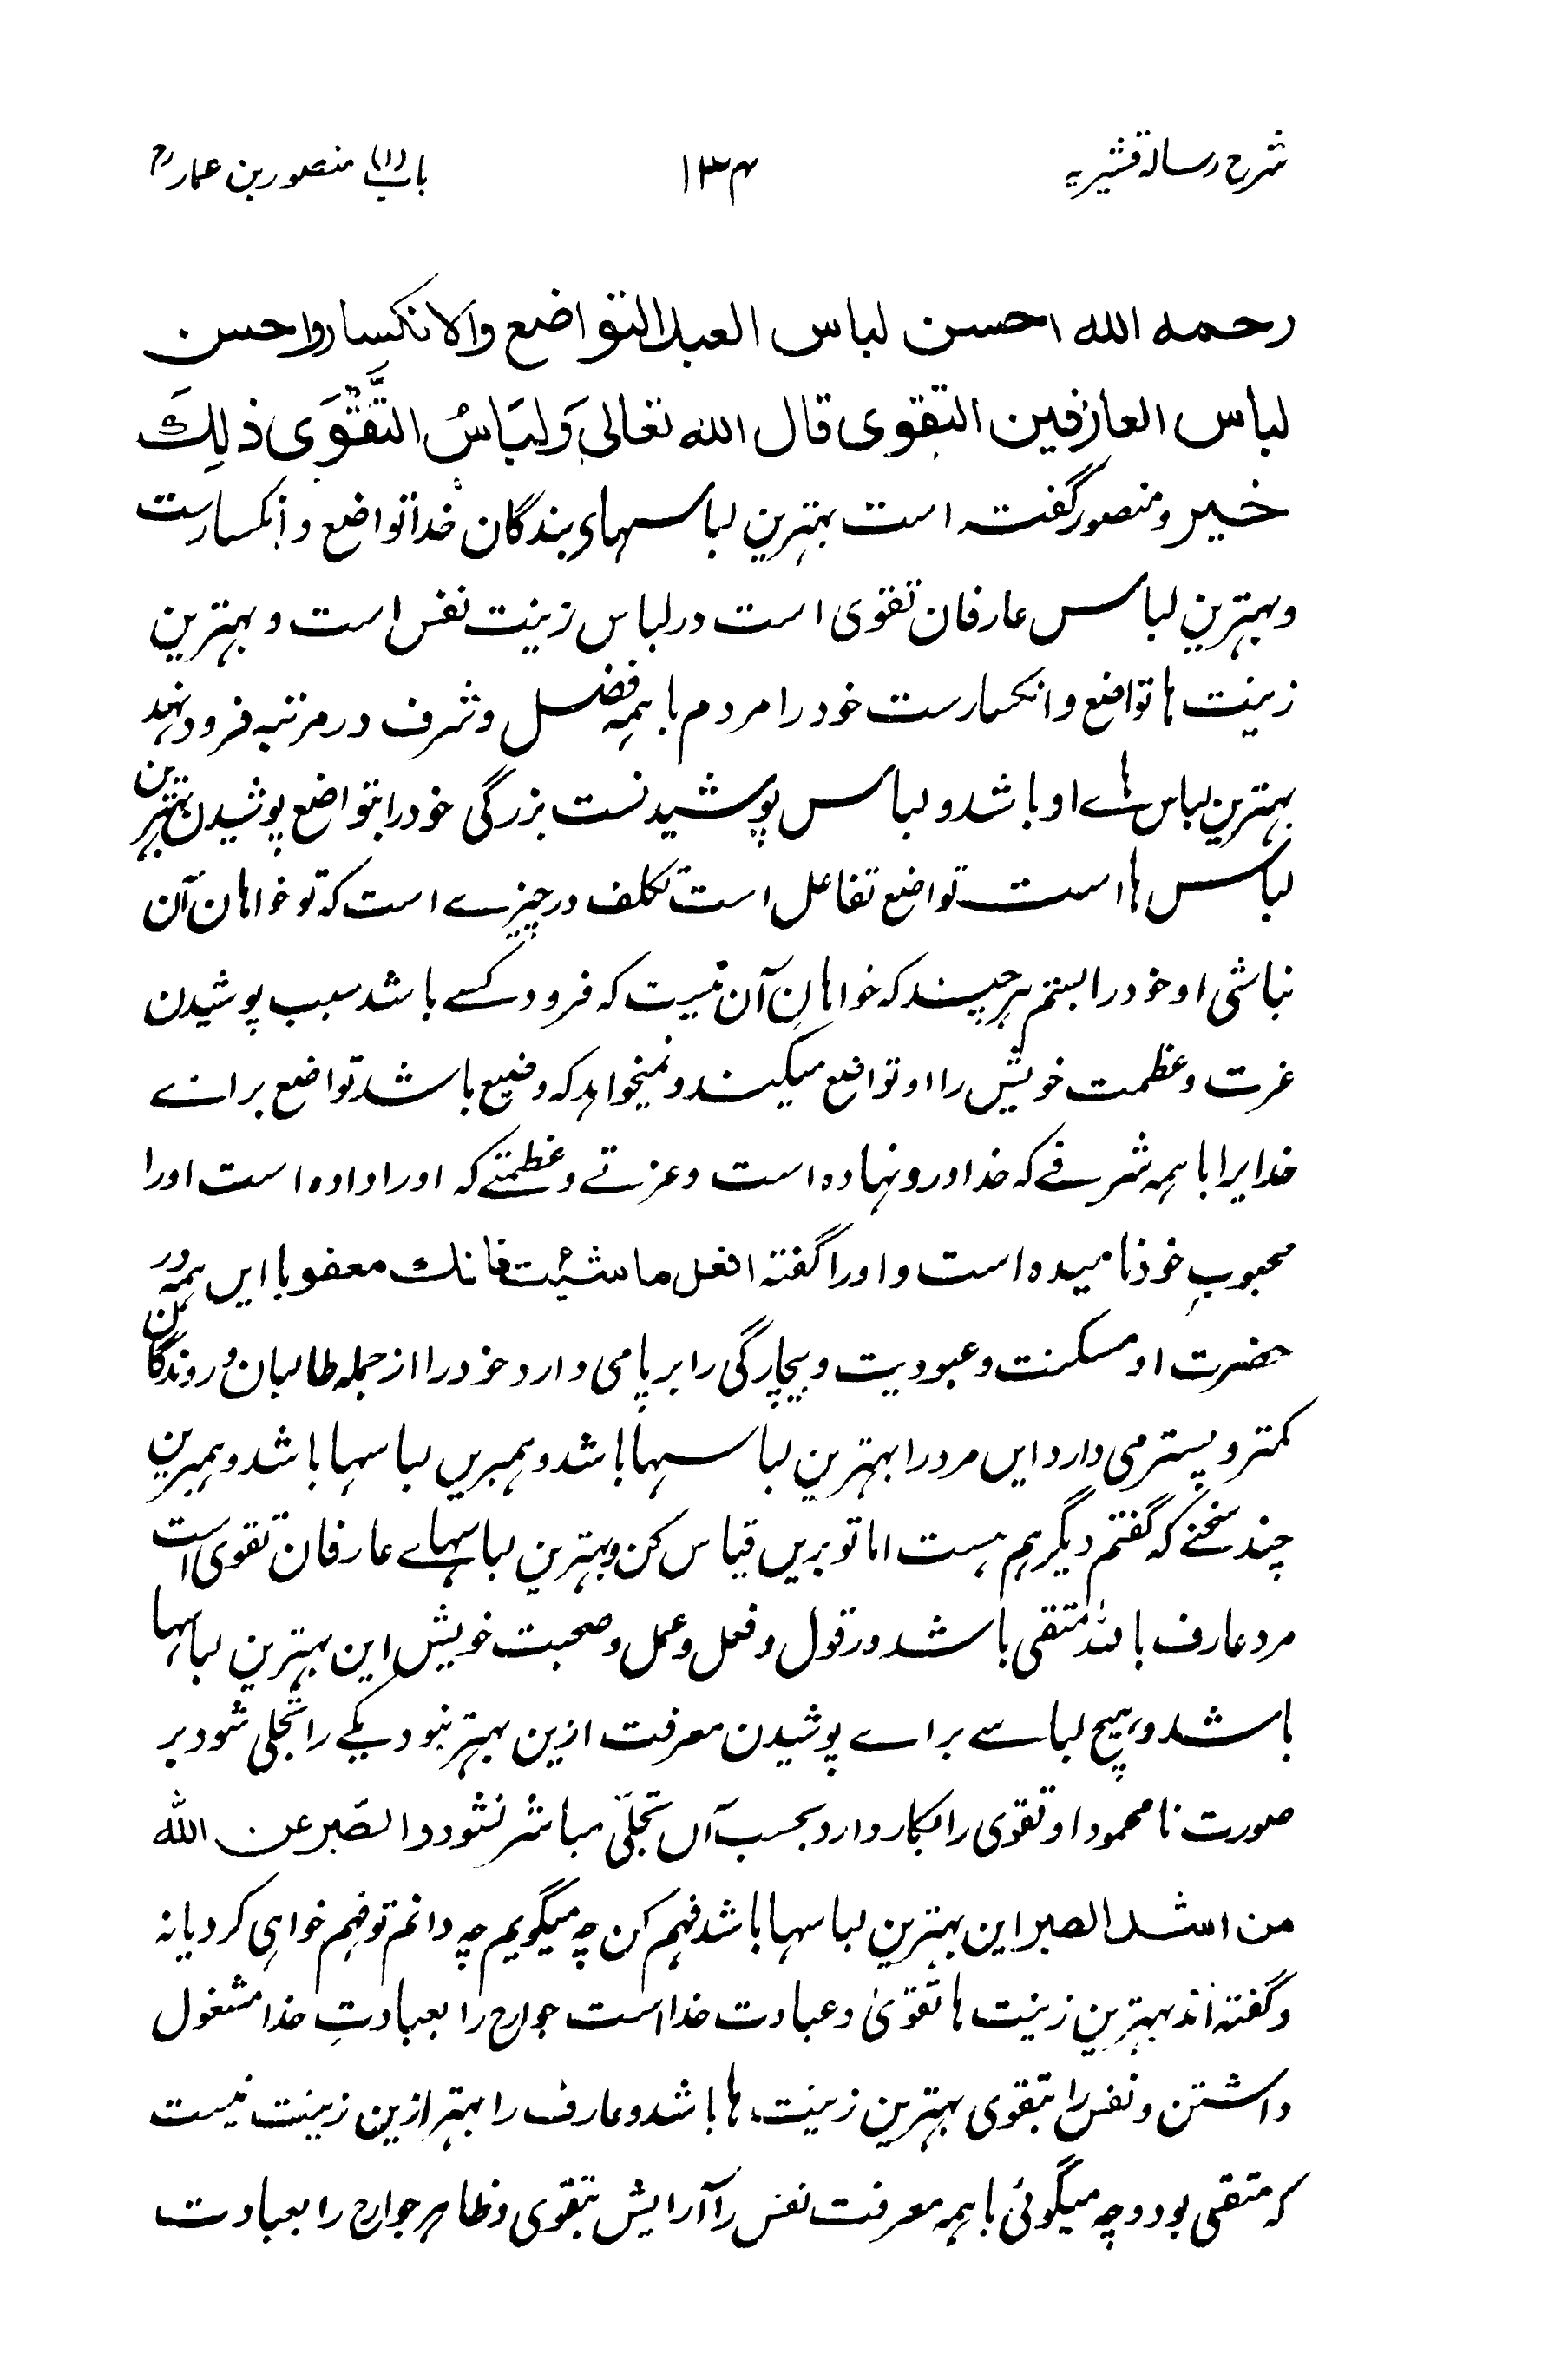 شرح رسالہ قشیریہ
۱۳۴
باب (۱۱) منصور بن عمار رح
رحمه الله احسن لباس العبد التواضع والانكسار واحسن
لباس العارفين التقوى قال الله تعالى وَلِبَاسُ التَّقْوَى ذٰلِكَ
خير ومنصور گفتہ است بہترین لباسہای بندگان خدا تواضع و انکسارست
وبہترین لباس عارفان تقوی است در لباس زینت نفس است و بہترین
زینت ہا تواضع و انکسارست خود را مردم با ہمہ فضل و شرف در مرتبہ فرود نہد
بہترین لباس ہاے او باشد و لباس پوشیدنست بزرگی خود را بتواضع پوشیدن بہترین
لباس ہا است تواضع تفاعل است تکلف در چیزے است کہ تو خواہان آن
نباشی او خود را بستم ہر چند کہ خواہانِ آن نیست کہ فرود کسے باشد سبب پوشیدن
عزت و عظمت خویش را او تواضع میکند و نمیخواہد کہ وضیع باشد تواضع براے
خدایرا با ہمہ شرفے کہ خدا درو نہادہ است و عزتے و عظمتے کہ او را دادہ است او را
محبوبِ خود نامیدہ است و او را گفتہ افعل ما شئت فانك معفو با ایں ہمہ در
حضرت او مسکنت و عبودیت و بیچارگی را برپا می دارد خود را از جملہ طالبان و روندگان
کمتر و پستر می دارد ایں مرد را بہترین لباسہا باشد و ہمبریں لباسہا باشد و ہمبرین
چند سخنے کہ گفتم دیگر ہم ہست اما تو بریں قیاس کن و بہترین لباسہاے عارفان تقوی است
مرد عارف باللہ متقی باشد در قول و فعل و عمل و صحبت خویش این بہترین لباسہا
باشد و ہیچ لباسے براے پوشیدن معرفت ازین بہتر نبود یکے را تجلی شود بر
صورت نا محمود او تقوی را بکار دارد بحسب آں تجلّی مباشر نشود و الصّبر عن الله
من اشد الصبر این بہترین لباسہا باشد فہم کن چہ میگویم چہ دانم تو فہم خواہی کرد یا نہ
و گفتہ اند بہترین زینت ہا تقویٰ و عبادت خدا است جوارح را بعبادتِ خدا مشغول
داشتن و نفس را بتقوی بہترین زینت ہا باشد و عارف را بہتر ازین زینت نیست
کہ متقی بود و چہ میگوئی با ہمہ معرفت نفس را آرایش بتقوی و ظاہر جوارح را بعبادت